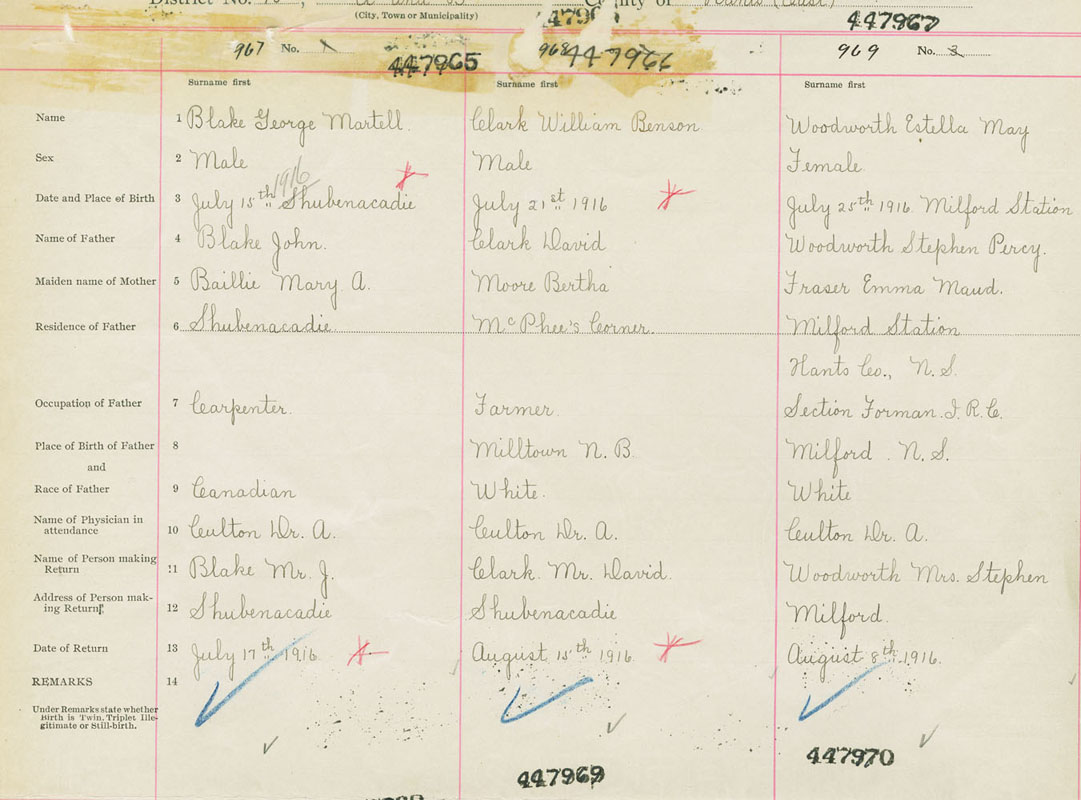 District No.
County of Hants (East)
(City, Town or Municipality)
447967
967 No. 1
447965
968
447966
969 No. 3
Surname first
Surname first
Surname first
Name 1 Blake George Martell. Clark William Benson Woodworth Estella May
Sex 2 Male Male Female
1916
Date and Place of Birth 3 July 15th Shubenacadie July 21st 1916 July 25th 1916. Milford Station
Name of Father 4 Blake John. Clark David Woodworth Stephen Percy.
Maiden name of Mother 5 Baillie Mary A. Moore Bertha Fraser Emma Maud.
Residence of Father 6 Shubenacadie. McPhee's Corner. Milford Station
Hants Co., N.S.
Occupation of Father 7 Carpenter. Farmer. Section Forman. I.R.C.
Place of Birth of Father 8 Milltown N.B. Milford. N.S.
and
Race of Father 9 Canadian White. White
Name of Physician in
attendance 10 Culton Dr. A. Culton Dr. A. Culton Dr. A.
Name of Person making
Return 11 Blake Mr. J. Clark. Mr. David. Woodworth Mrs. Stephen
Address of Person mak-
ing Return 12 Shubenacadie Shubenacadie Milford.
Date of Return 13 July 17th 1916. August 15th 1916. August 8th 1916.
REMARKS 14
Under Remarks state whether
Birth is Twin, Triplet Ille-
gitimate or Still-birth.
447969
447970